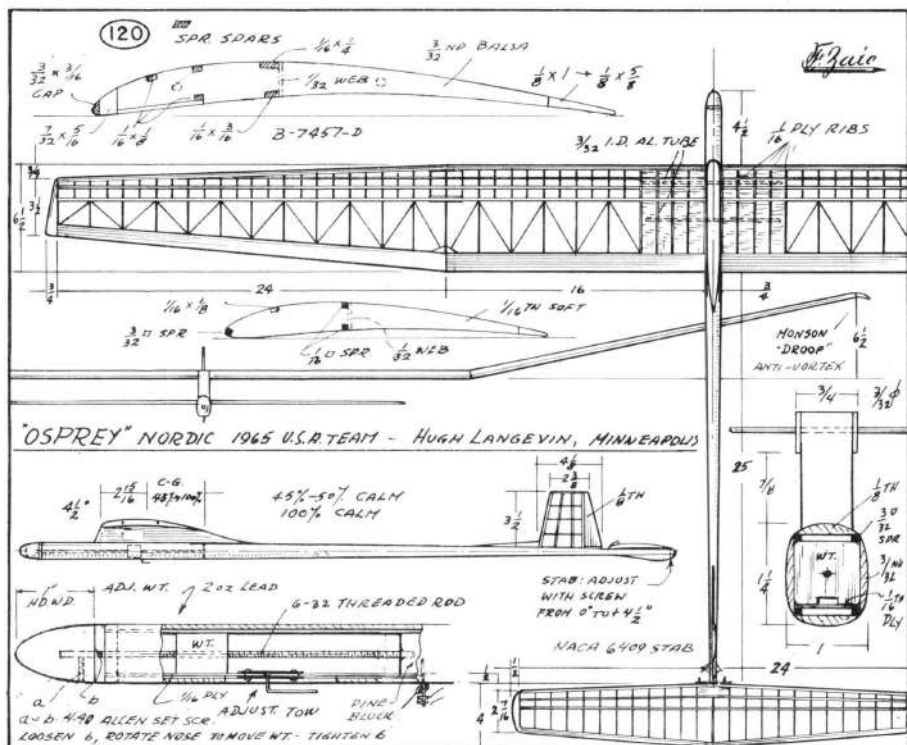 120
SPR. SPARS
1/16 x 1/4
3/32 ND BALSA
F. Zaic
3/32 x 3/16
CAP
1/32 WEB
1/8 x 1 → 1/8 x 5/8
7/32 x 5/16
1/16 x 1/8
1/16 x 3/16
B-7457-D
4 1/2
3/32 I.D. AL. TUBE
1/16 PLY RIBS
3/4
3 1/2
6 1/2
3/4
24
16
3/4
1/16 x 1/8
1/16 TH SOFT
3/32 □ SPR
1/16 □ SPR
1/32 WEB
MONSON
"DROOP"
ANTI-VORTEX
6 1/2
3/4
3/32 ϕ
"OSPREY" NORDIC 1965 U.S.A. TEAM - HUGH LANGEVIN, MINNEAPOLIS
4 1/2°
2 15/16
C-G.
45%-50% CALM
100% CALM
2 3/8
3 1/2
1/8 TH
25
7/8
1/8 TH
3/32 □
SPR
3/32 ND
WT.
1 1/4
1/16 TH
PLY
1
STAB: ADJUST
WITH SCREW
FROM 0° TO + 4 1/2°
1"
HD. WD.
ADJ. WT.
2 OZ LEAD
6-32 THREADED ROD
WT.
NACA 6409 STAB
24
a
b
1/16 PLY
ADJUST. TOW
PINE-
BLOCK
1/2
4
2 7/16
a-b 4-40 ALLEN SET SCR.
LOOSEN b, ROTATE NOSE TO MOVE WT.- TIGHTEN b